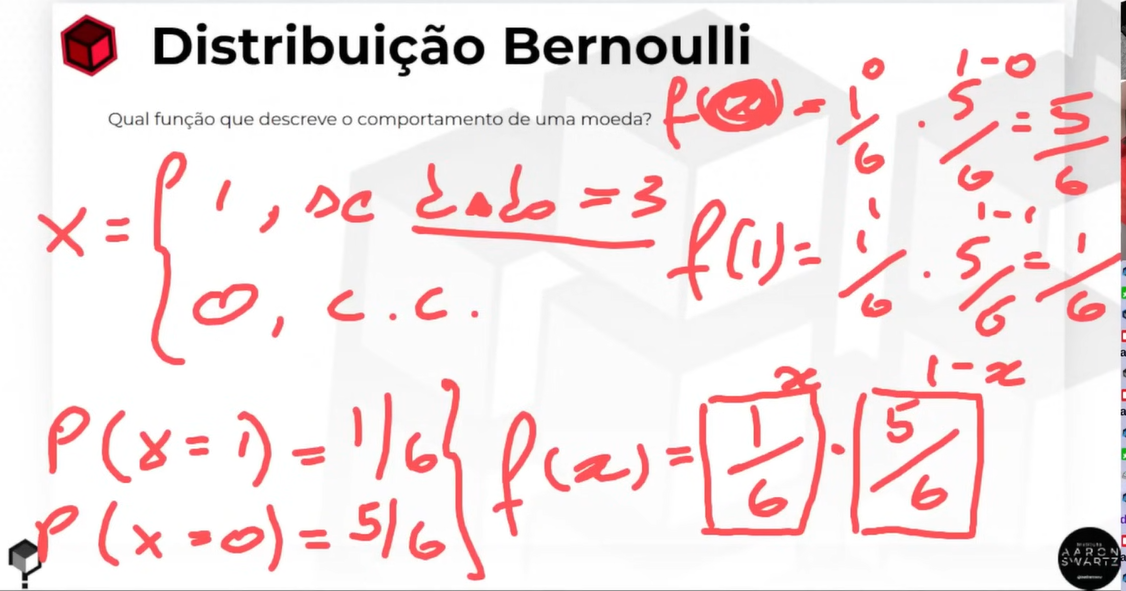 Distribuição Bernoulli
Qual função que descreve o comportamento de uma moeda?
f( ) = 1/6^0 . 5/6^1-0 = 5/6
X = { 1, se dado = 3
0, c.c.
f(1) = 1/6^1 . 5/6^1-1 = 1/6
P(x = 1) = 1/6
P(x = 0) = 5/6
} f(x) = 1/6^x . 5/6^1-x
AARON
SWARTZ